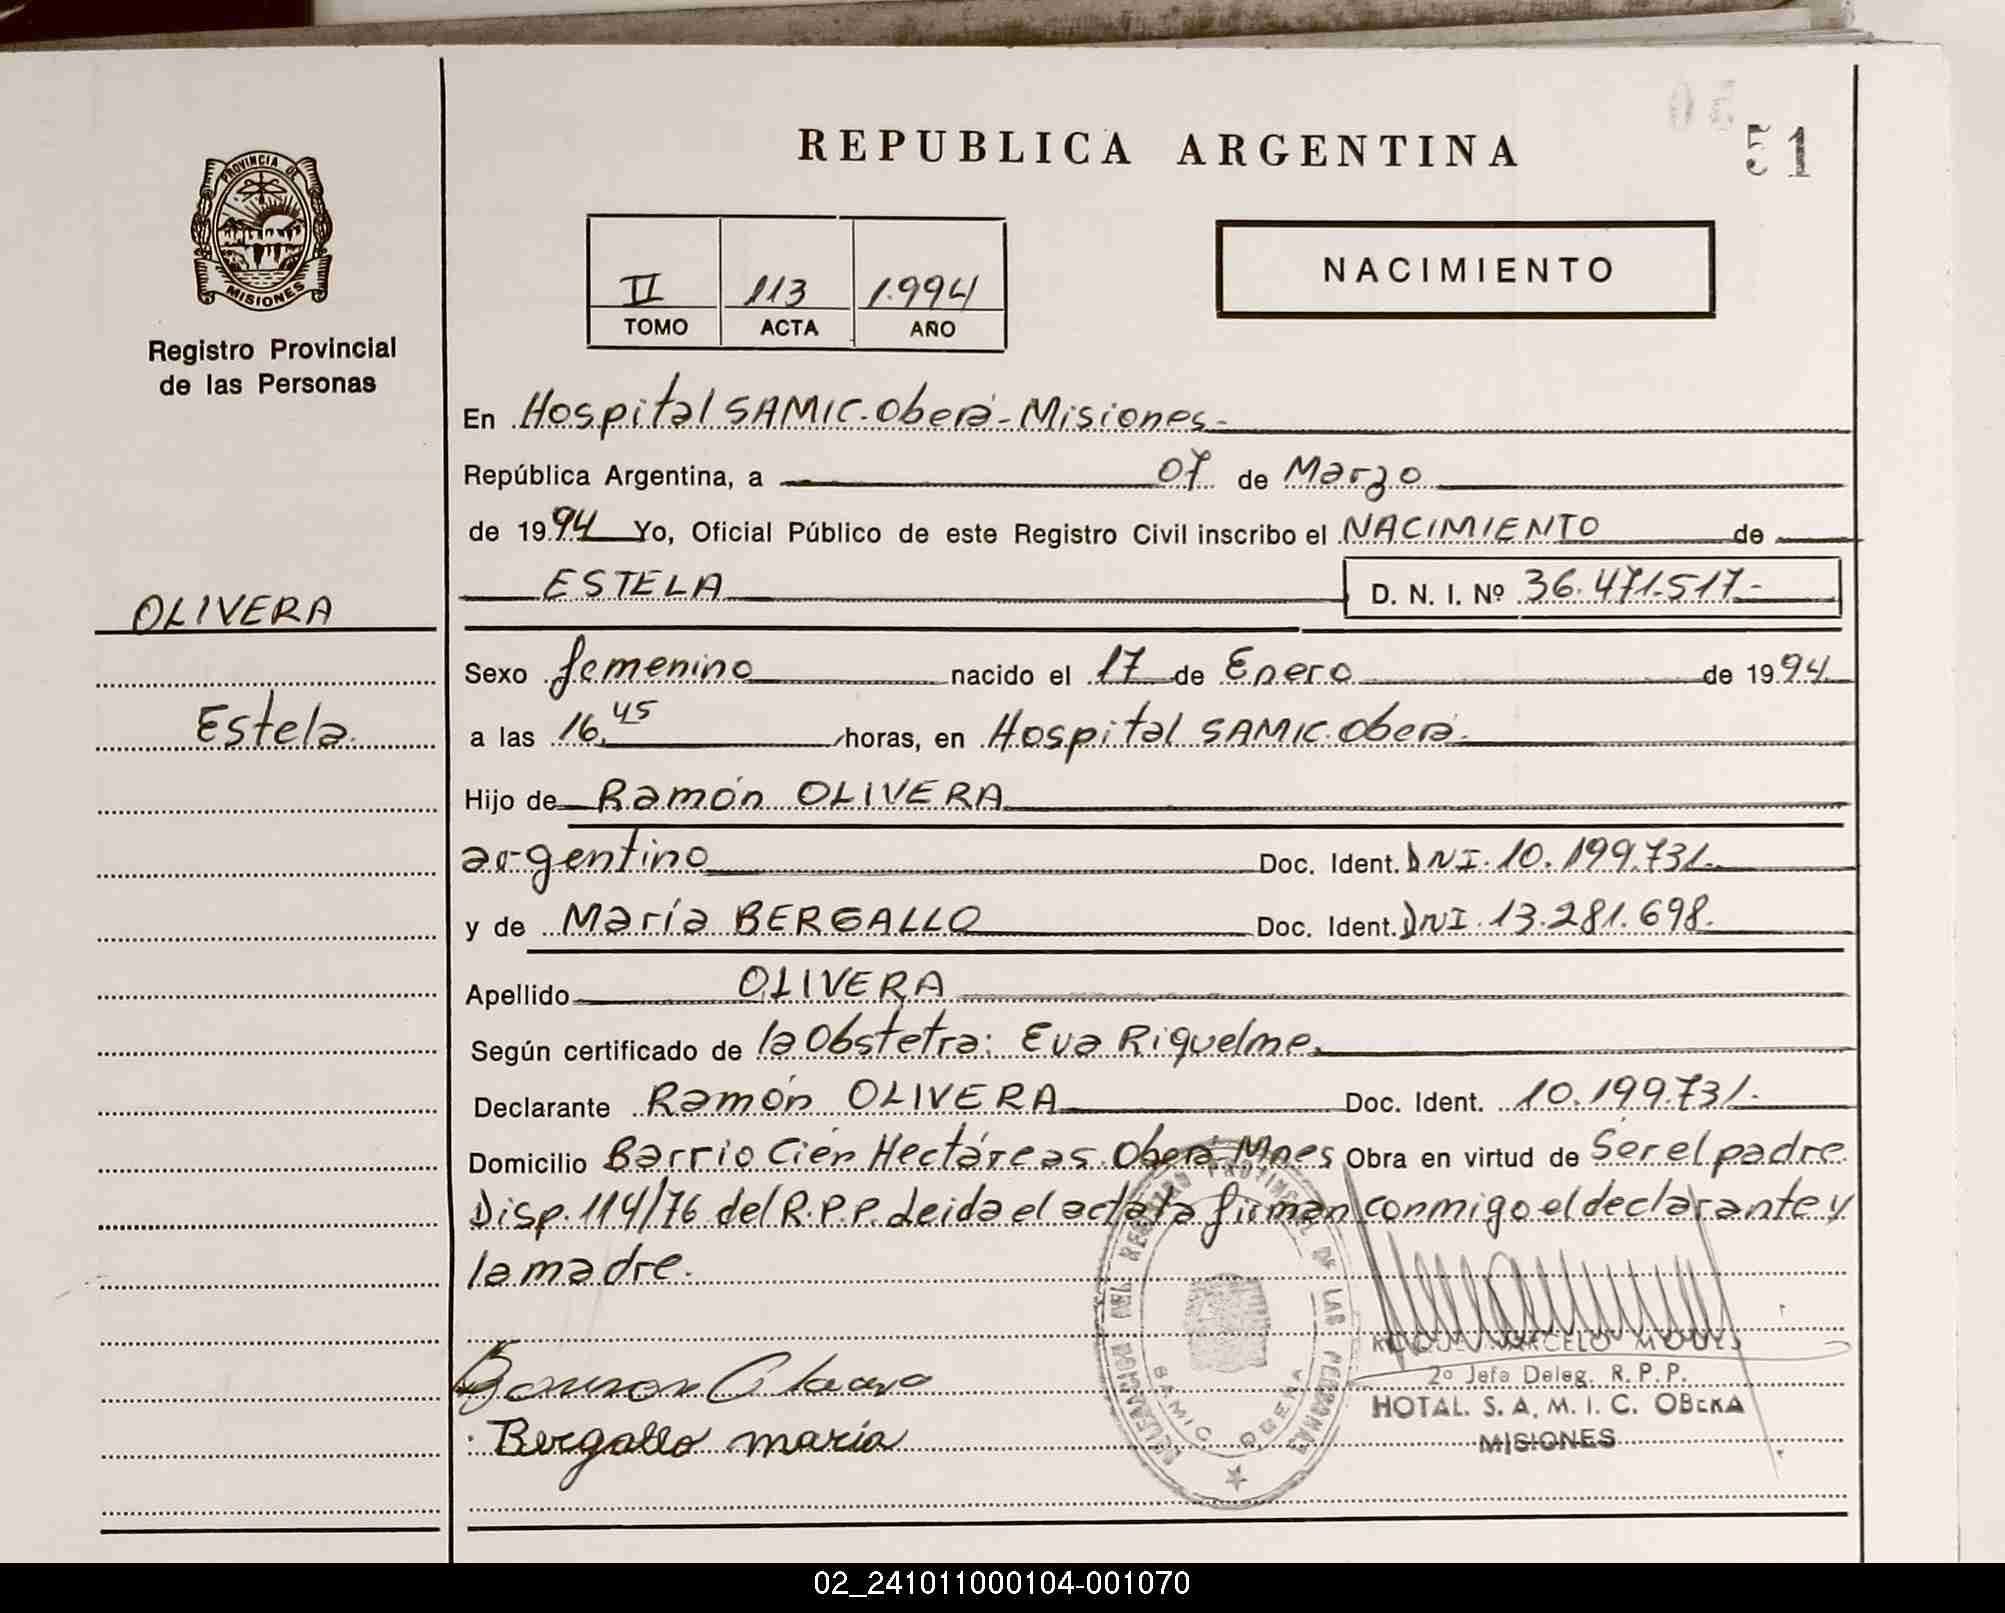 REPUBLICA ARGENTINA
51
PROVINCIA DE
MISIONES
Registro Provincial
de las Personas
II 113 1.994
TOMO ACTA AÑO
NACIMIENTO
En Hospital SAMIC. Oberá - Misiones -
República Argentina, a 07 de Marzo
de 1994 Yo, Oficial Público de este Registro Civil inscribo el NACIMIENTO de
ESTELA D. N. I. Nº 36.471.517-
OLIVERA
Sexo femenino nacido el 17 de Enero de 1994
Estela.
a las 16,45 horas, en Hospital SAMIC. Oberá.
Hijo de Ramón OLIVERA
argentino Doc. Ident. DNI. 10.199.731.
y de María BERGALLO Doc. Ident. DNI. 13.281.698.
Apellido OLIVERA
Según certificado de la Obstetra: Eva Riquelme.
Declarante Ramón OLIVERA Doc. Ident. 10.199.731.
Domicilio Barrio Cién Hectáreas. Oberá Mnes Obra en virtud de Ser el padre
Disp. 114/76 del R.P.P. Leida el acta ta firman conmigo el declarante y
la madre.
DELEGACION DEL REGISTRO PROVINCIAL DE LAS PERSONAS
SAMIC OBERA
MARCELO
2º Jefe Deleg. R. P. P.
HOTAL. S. A. M. I. C. OBERA
MISIONES
Bergallo maria
02_241011000104-001070